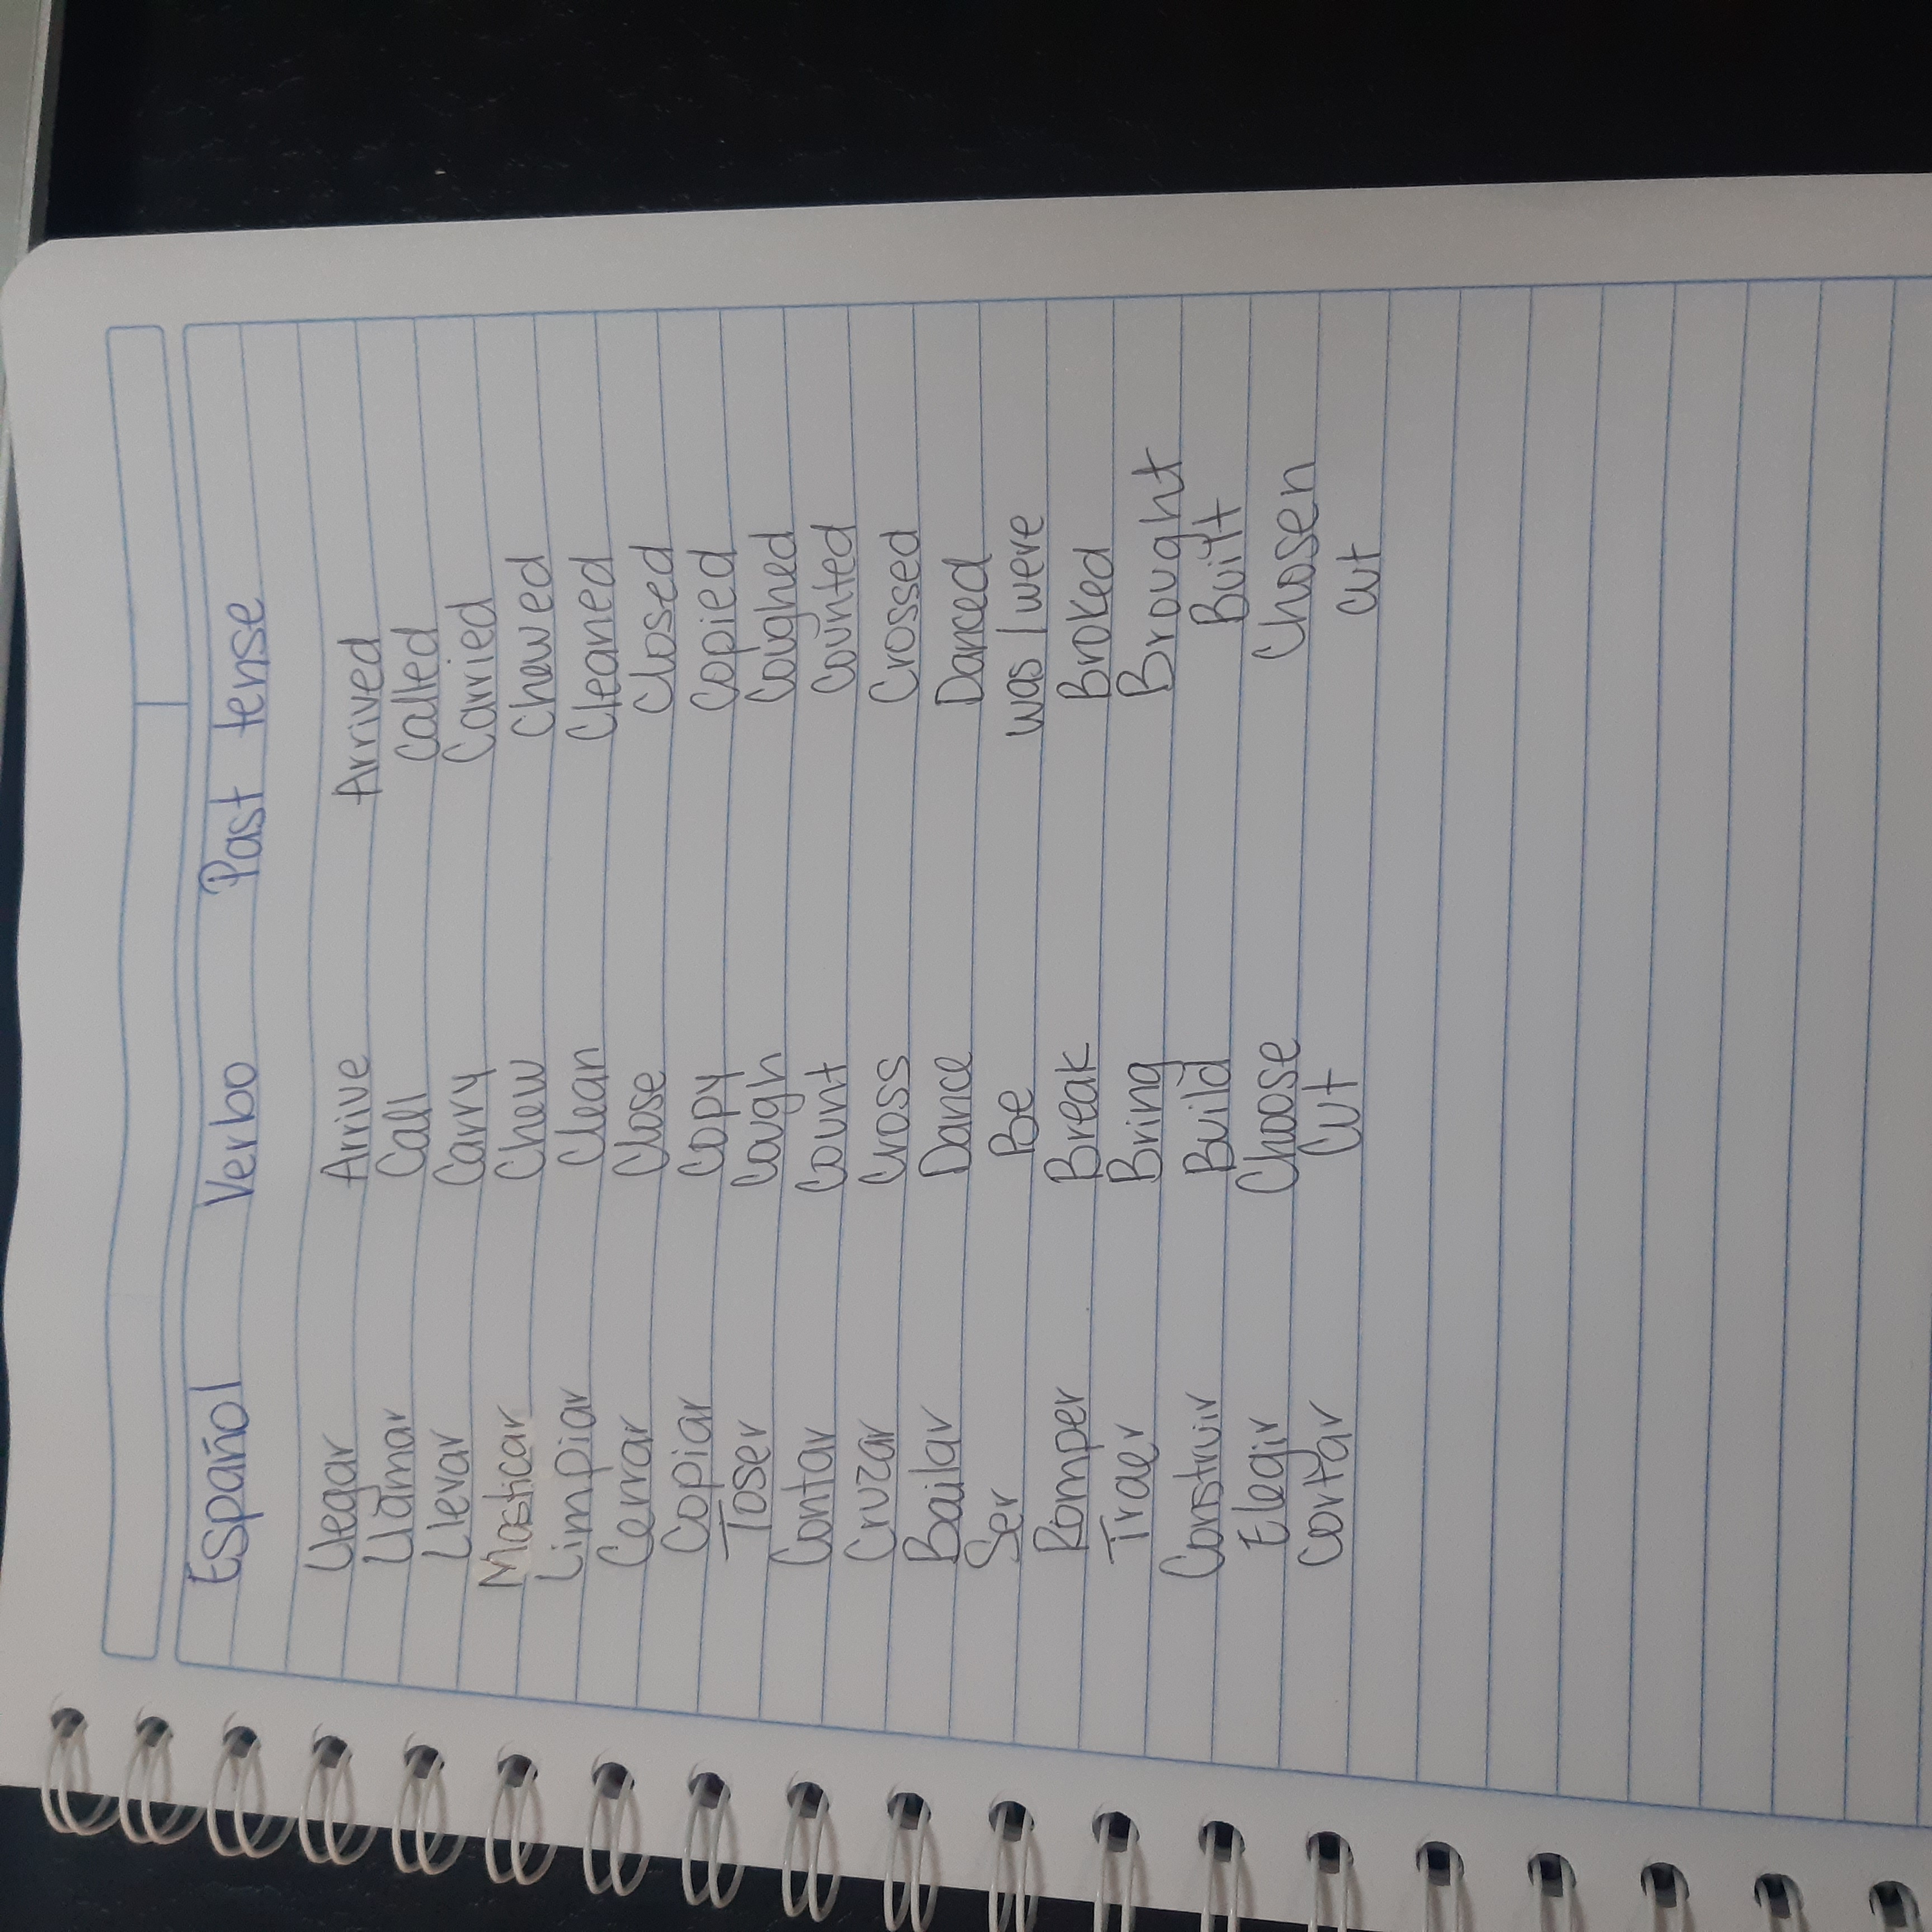 Español Verbo Past tense
Llegar Arrive Arrived
Llamar Call Called
Llevar Carry Carried
Masticar Chew Chewed
Limpiar Clean Cleaned
Cerrar Close Closed
Copiar Copy Copied
Toser Cough Coughed
Contar Count Counted
Cruzar Cross Crossed
Bailar Dance Danced
Ser Be was / were
Romper Break Broked
Traer Bring Brought
Construir Build Built
Elegir Choose Chosen
Cortar Cut cut